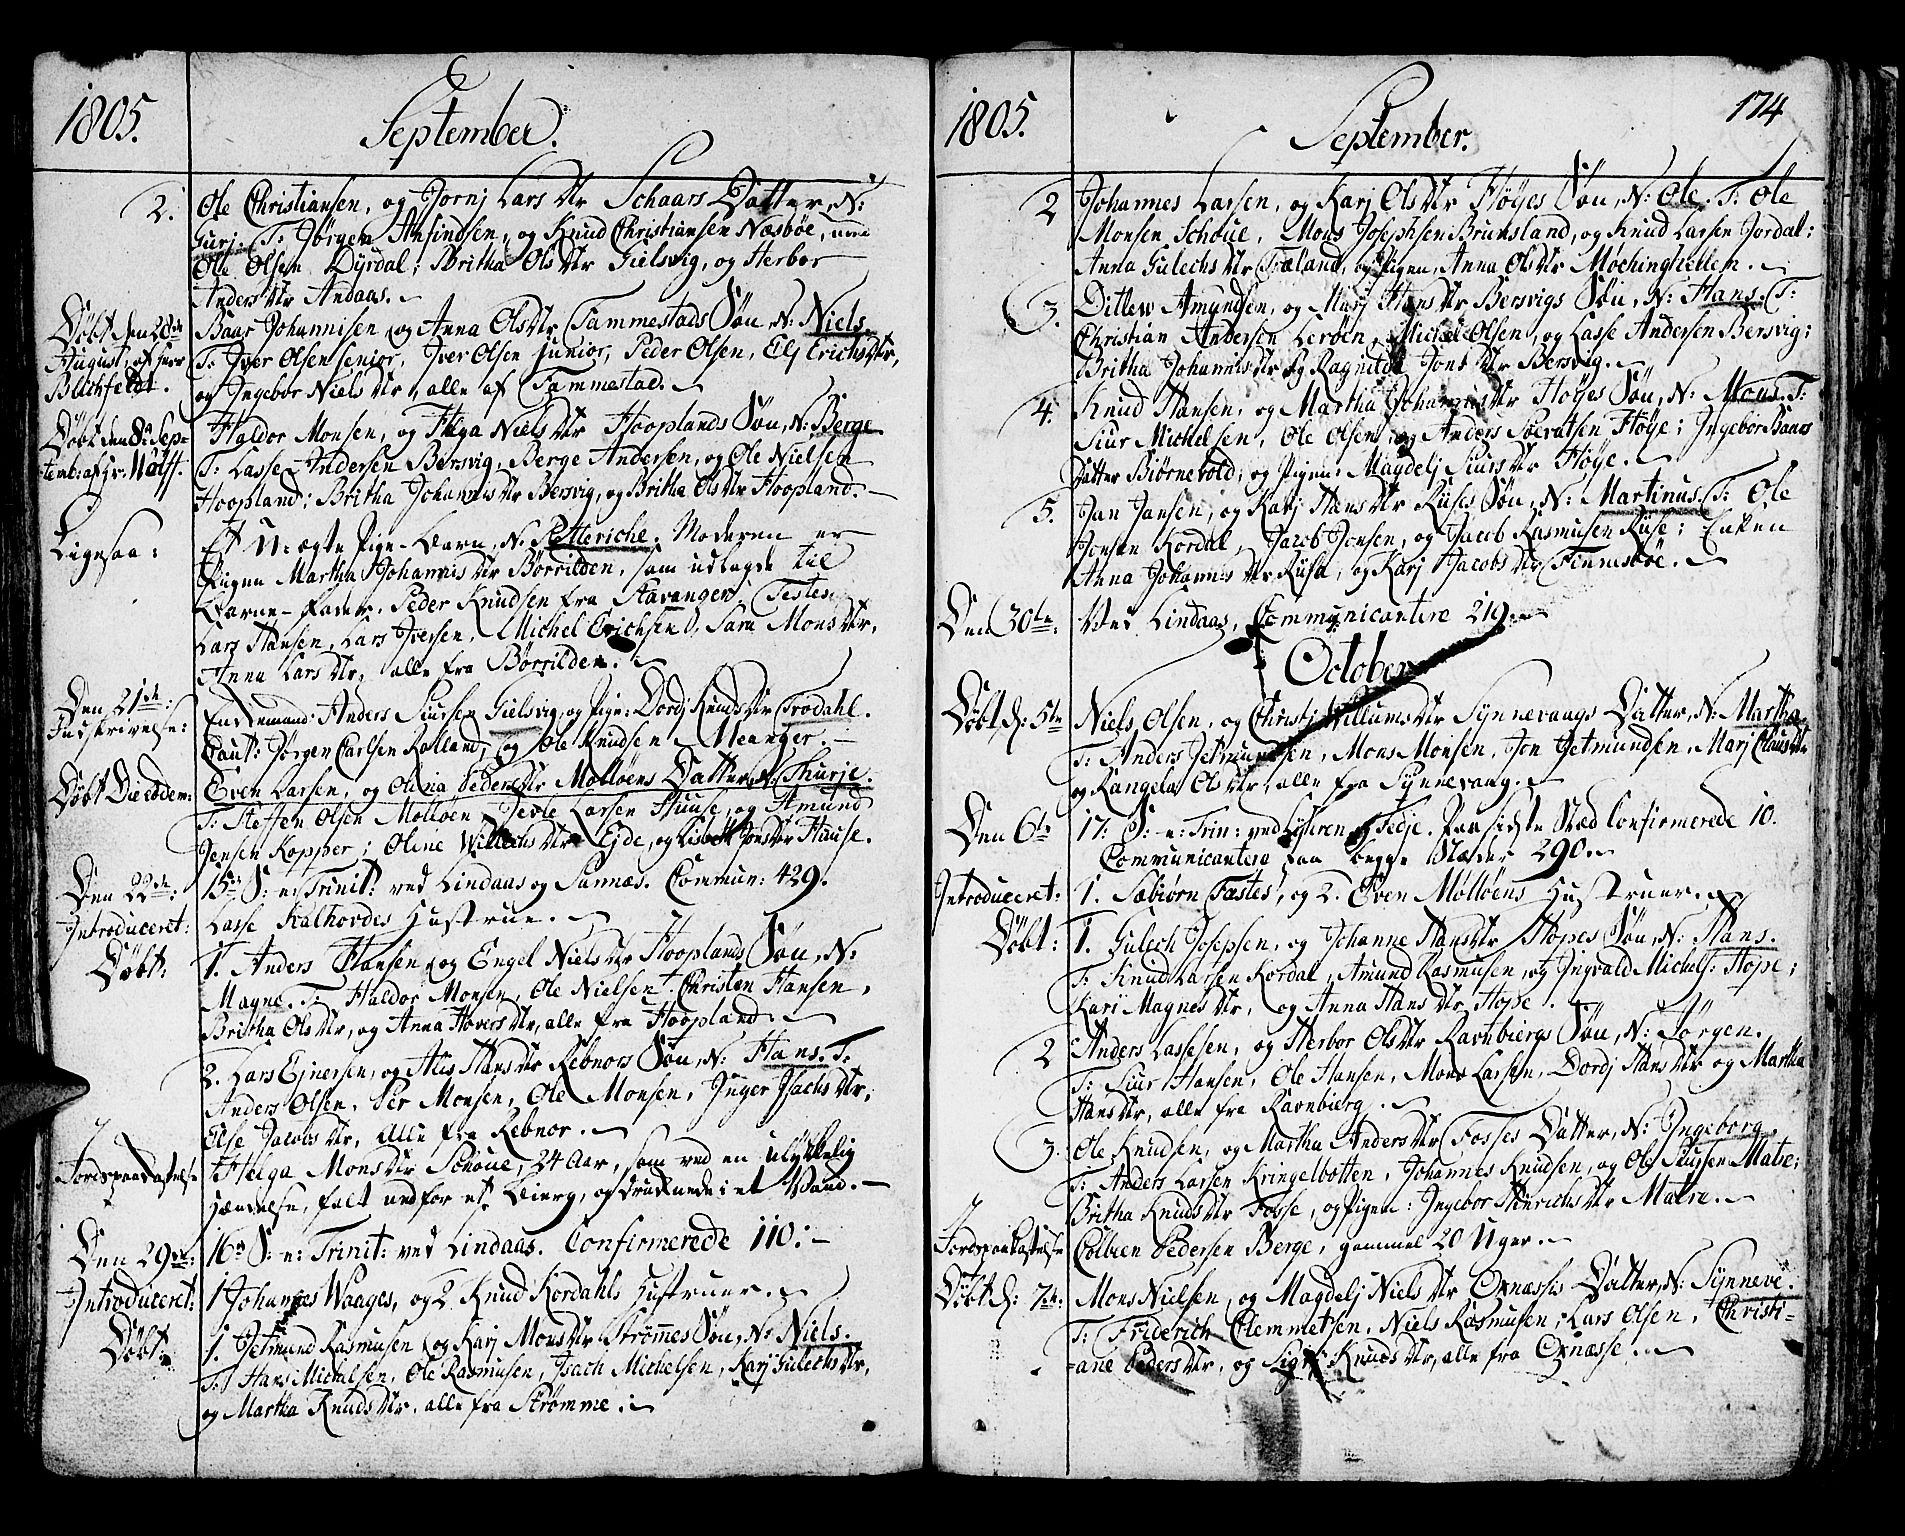 1805. September.
2. Ole Christiansen, og Jornj Lars Dtr Schaars Datter, N:
Gurj: T: Jørgen Anfindsen, og Knud Christiansen Næsbøe,
Ole Olsen Dyrdal; Britha Ols Dtr Gielsvig, og Herbor
Anders Dtr Andaas.
Døbt den 28de Baar Johannisen og Anna Ols Dtr Tammestads Søn, N: Niels.
August, af Herr T: Iver Olsen senior, Iver Olsen junior, Peder Olsen, Elj Erichs Dtr,
Blichfeldt. og Ingebor Niels Dtr, alle af Tammestad.
Døbt den 8: Sep- Haldor Monsen, og Helga Niels Dtr Hooplands Søn, N: Berge
temb: af Hr: Wulff. T: Lasse Andersen Bersvig, Berge Andersen, og Ole Nielsen
Hoopland; Britha Johannis Dtr Bersvig, og Britha Ols Dtr Hoopland.
Ligesaa: Et U-ægte Pige-Barn, N: Petteriche. Moderen er
Pigen Martha Johannis Dtr Børrilden, som udlagde til
Barne-Fader: Peder Knudsen fra Stavanger. Testes
Lars Hansen, Lars Iversen, Michel Erichsen, Sara Mons Dtr,
Anna Lars Dtr, alle fra Børrilden.
Den 21de: Enkemand: Anders Siursen Gielsvig, og Pige: Dordj Knuds Dtr Trodahl.
Indskrivelse: Caut: Jørgen Carlsen Rolland, og Ole Knudsen Meanger.
Døbt Die eodem: Even Larsen, og Olina Peders Dtr Molløens Datter, N: Thurje.
T: Steffen Olsen Molløen, Larsen Huuse, og Amund
Jensen Kopper; Oline Willechs Dtr Ejde, og Lisbett Jons Dtr Hause.
Den 22de: 15de S: e: Trinit: ved Lindaas og Sannæs. Commun: 429.
Introduceret: Lasse Kalhovdes Hustrue.
Døbt: 1. Anders Hansen og Engel Niels Dtr Hooplands Søn, N:
Magne. T: Haldor Monsen, Ole Nielsen, Christen Hansen,
Britha Ols Dtr, og Anna Hovers Dtr, alle fra Hoopland.
2. Lars Ejnersen, og Alis Hans Dtr Rebnors Søn, N: Hans. T:
Anders Olsen, Per Monsen, Ole Monsen, Inger Isachs Dtr,
Else Jacobs Dtr, alle fra Rebnor.
Jordspaakastelse Helga Mons Dtr Schoue, 24 Aar, som ved en ulykkelig
Hændelse, falt nedfor et Bierg, og druknede i et Vand.
Den 29de: 16de S: e: Trinit: ved Lindaas. Confirmerede 110:
Introduceret: 1 Johannes Waages, og 2. Knud Kordahls Hustruer.
Døbt: 1. Jetmund Rasmusen og Karj Mons Dtr Strømmes Søn, N: Niels.
T: Hans Michelsen, Ole Rasmusen, Isach Michelsen, Karj Gulechs Dtr,
og Martha Knuds Dtr, alle fra Strømme.
1805. September. 174
2 Johannes Larsen, og Karj Ols Dtr Høyes Søn, N: Ole. T: Ole
Monsen Schoue, Mons Josephsen Brunsland, og Knud Larsen Jordal;
Anna Gulechs Dtr Træland, og Pigen, Anna Ols Dtr Mochinghellen.
3. Ditlew Amundsen, og Marj Hans Dtr Bersvigs Søn, N: Hans. T:
Christian Andersen Lerøen, Michel Olsen, og Lasse Andersen Bersvig;
Britha Johannis Dtr og Ragnilde Jons Dtr Bersvig.
4. Knud Hansen, og Martha Johannis Dtr Høyes Søn, N: Mons. T:
Siur Michelsen, Ole Olsen, og Anders Siversen Høye; Ingebor Baars
Datter Biørnevold, og Pigen: Magdelj Siurs Dtr Høye.
5. Jan Jansen, og Karj Hans Dtr Rises Søn, N: Martinus. T: Ole
Jonsen Kordal, Jacob Jonsen, og Jacob Rasmusen Riise; Enken
Anna Johannis Dtr Riisa, og Karj Jacobs Dtr Finnesbøe.
Den 30te: Ved Lindaas, Communicantere 219.
October
Døbt d: 5te Niels Olsen, og Christj Willums Dtr Synnevaags Datter, N: Martha
T: Anders Jetmundsen, Mons Monsen, Jon Jetmundsen, Marj Claus Dtr
og Rangela Ols Dtr, alle fra Synnevaag.
Den 6te 17: S: e: Trin: ved Lyseren og Fedje. Paa sidste Stæd Confirmerede 10.
Communicantere paa begge Stæder 290.
Introduceret: 1. Sæbiørn Tæstes, og 2. Even Molløens Hustruer.
Døbt: 1. Gulech Josepsen, og Johanne Hans Dtr Hopes Søn, N: Hans.
T: Knud Larsen Kordal, Amund Rasmusen, og Ingvald Michels: Hope;
Karj Magnes Dtr, og Anna Hans Dtr Hope.
2 Anders Lassesen, og Herbor Ols Dtr Ravnbiergs Søn, N: Jørgen.
T: Siur Hansen, Ole Hansen, Mons Larsen, Dordj Hans Dtr og Martha
Hans Dtr, alle fra Ravnbierg.
3. Ole Knudsen, og Martha Anders Dtr Fosses Datter, N: Ingeborg.
T: Anders Larsen Kringelbotten, Johannes Knudsen, og Ole Siursen Matre;
Britha Knuds Dtr Fosse, og Pigen: Ingebor Henrichs Dtr Matre.
Jordspaakastelse Colbien Pedersen Berge, gammel 20 Uger.
Døbt d: 7de: Mons Nielsen, og Magdelj Niels Dtr Oxnæssis Datter, N: Synneve.
T: Friderich Clemmetsen, Niels Rasmusen, Lars Olsen, Christi-
-ane Peders Dtr, og Sigrj Knuds Dtr, alle fra Oxnæsse.